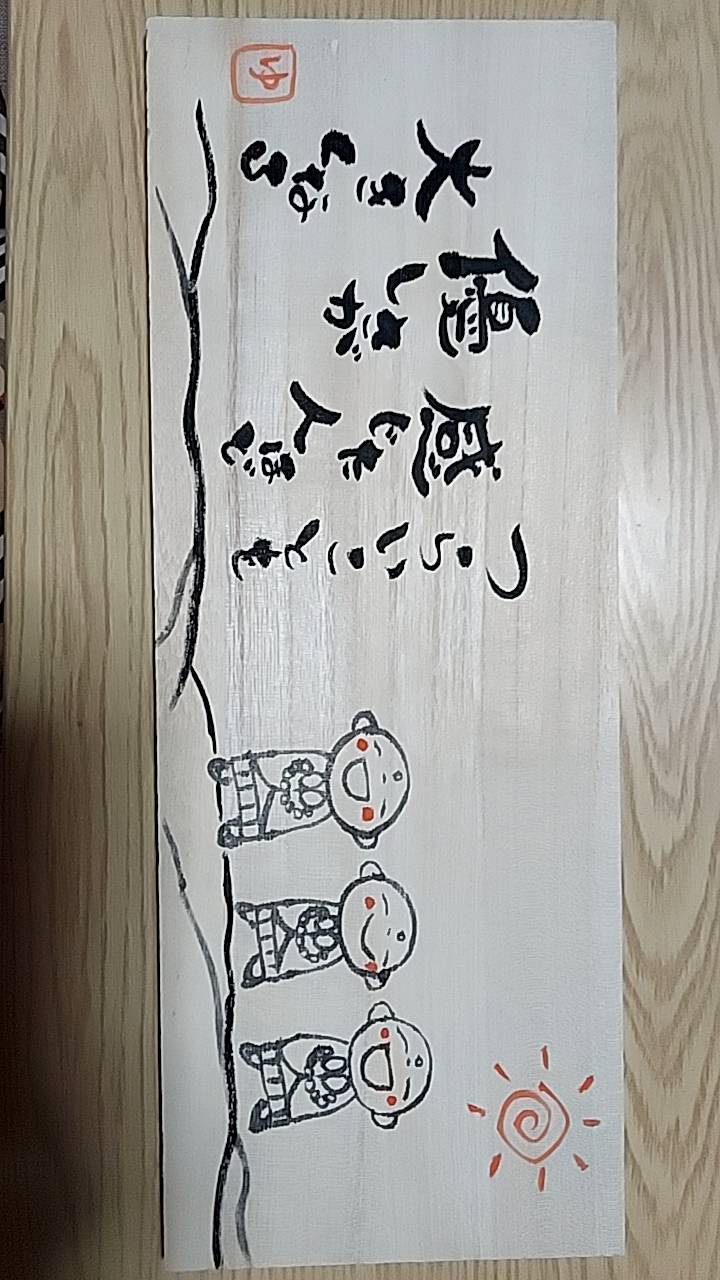 つらいことを
感じた人ほど
優しさが
大きくなる
ゆ